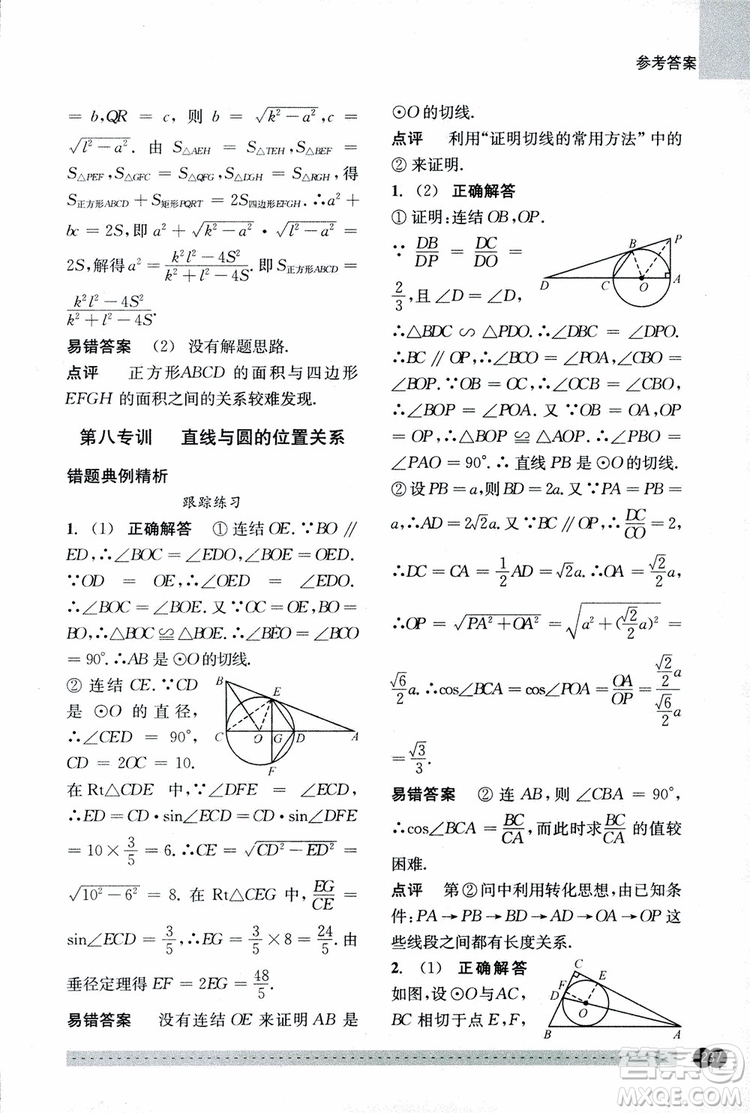 参考答案
= b,QR = c, 则 b = √(k²－a²),c =
√(l²－a²). 由 S△AEH = S△TEH,S△BEF =
S△PEF,S△GFC = S△QFG,S△DGH = S△RGH, 得
S正方形ABCD + S矩形PQRT = 2S四边形EFGH. ∴a² +
bc = 2S,即 a² + √(k²－a²) · √(l²－a²) =
2S,解得 a² = (k²l²－4S²)/(k²+l²－4S). 即 S正方形ABCD =
(k²l²－4S²)/(k²+l²－4S).
易错答案 (2) 没有解题思路.
点评 正方形ABCD 的面积与四边形
EFGH 的面积之间的关系较难发现.
第八专训 直线与圆的位置关系
错题典例精析
跟踪练习
1. (1) 正确解答 ① 连结 OE. ∵BO∥
ED,∴∠BOC = ∠EDO,∠BOE = ∠OED.
∵OD = OE, ∴∠OED = ∠EDO.
∴∠BOC = ∠BOE. 又 ∵OC = OE,BO =
BO,∴△BOC ≌ △BOE. ∴∠BEO = ∠BCO
= 90°. ∴AB 是 ⊙O 的切线.
② 连结 CE. ∵CD
是 ⊙O 的直径,
∴∠CED = 90°,
CD = 2OC = 10.
B E C O G D A F
在 Rt△CDE 中, ∵∠DFE = ∠ECD,
∴ED = CD·sin∠ECD = CD·sin∠DFE
= 10 × 3/5 = 6. ∴CE = √(CD²－ED²) =
√(10²－6²) = 8. 在 Rt△CEG 中, EG/CE =
sin∠ECD = 3/5,∴EG = 3/5 × 8 = 24/5. 由
垂径定理得 EF = 2EG = 48/5.
易错答案 没有连结 OE 来证明 AB 是
⊙O 的切线.
点评 利用“证明切线的常用方法”中的
② 来证明.
1. (2) 正确解答
① 证明:连结 OB,OP.
∵ DB/DP = DC/DO =
2/3, 且 ∠D = ∠D,
D B P C O A
∴△BDC ∽ △PDO. ∴∠DBC = ∠DPO.
∴BC∥OP. ∴∠BCO = ∠POA,∠CBO =
∠BOP. ∵OB = OC, ∴∠OCB = ∠CBO.
∴∠BOP = ∠POA. 又 ∵OB = OA,OP
= OP, ∴△BOP ≌ △AOP. ∴∠PBO =
∠PAO = 90°. ∴ 直线 PB 是 ⊙O 的切线.
② 设 PB = a,则 BD = 2a. ∵PA = PB = a,
∴AD = 2√2a. 又 ∵BC∥OP, ∴DC/CO = 2.
∴DC = CA = 1/2 AD = √2a. ∴OA = √2/2 a.
∴OP = √(PA²+OA²) = √(a²+(√2/2 a)²) =
√6/2 a. ∴cos∠BCA = cos∠POA = OA/OP = (√2/2 a)/(√6/2 a)
= √3/3.
易错答案 ② 连 AB,则 ∠CBA = 90°,
∴cos∠BCA = BC/CA, 而此时求 BC/CA 的值较
困难.
点评 第②问中利用转化思想,由已知条
件:PA→PB→BD→AD→OA→OP 这
些线段之间都有长度关系.
2. (1) 正确解答
如图,设 ⊙O 与AC,
BC 相切于点 E,F,
C E F D O B A